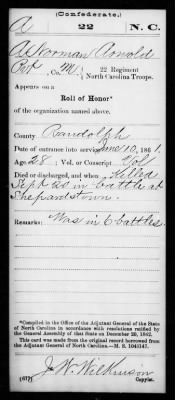 (Confederate.)
A 22 N. C.
A. Norman Arnold
Pvt, Co. M, 22 Regiment
North Carolina Troops.
Appears on a
Roll of Honor*
of the organization named above.
County Randolph
Date of entrance into service June 10, 1861.
Age 28; Vol. or Conscript Vol
Died or discharged, and when Killed
Sept 20 in battle at
Shepardstown.
Remarks: Was in 6 battles
*Compiled in the Office of the Adjutant General of the State
of North Carolina in accordance with resolutions ratified by
the General Assembly of that State on December 20, 1862.
This card was made from the original record borrowed from
the Adjutant General of North Carolina.—M. S.
(677) J. W. Wilkinson
Copyist.